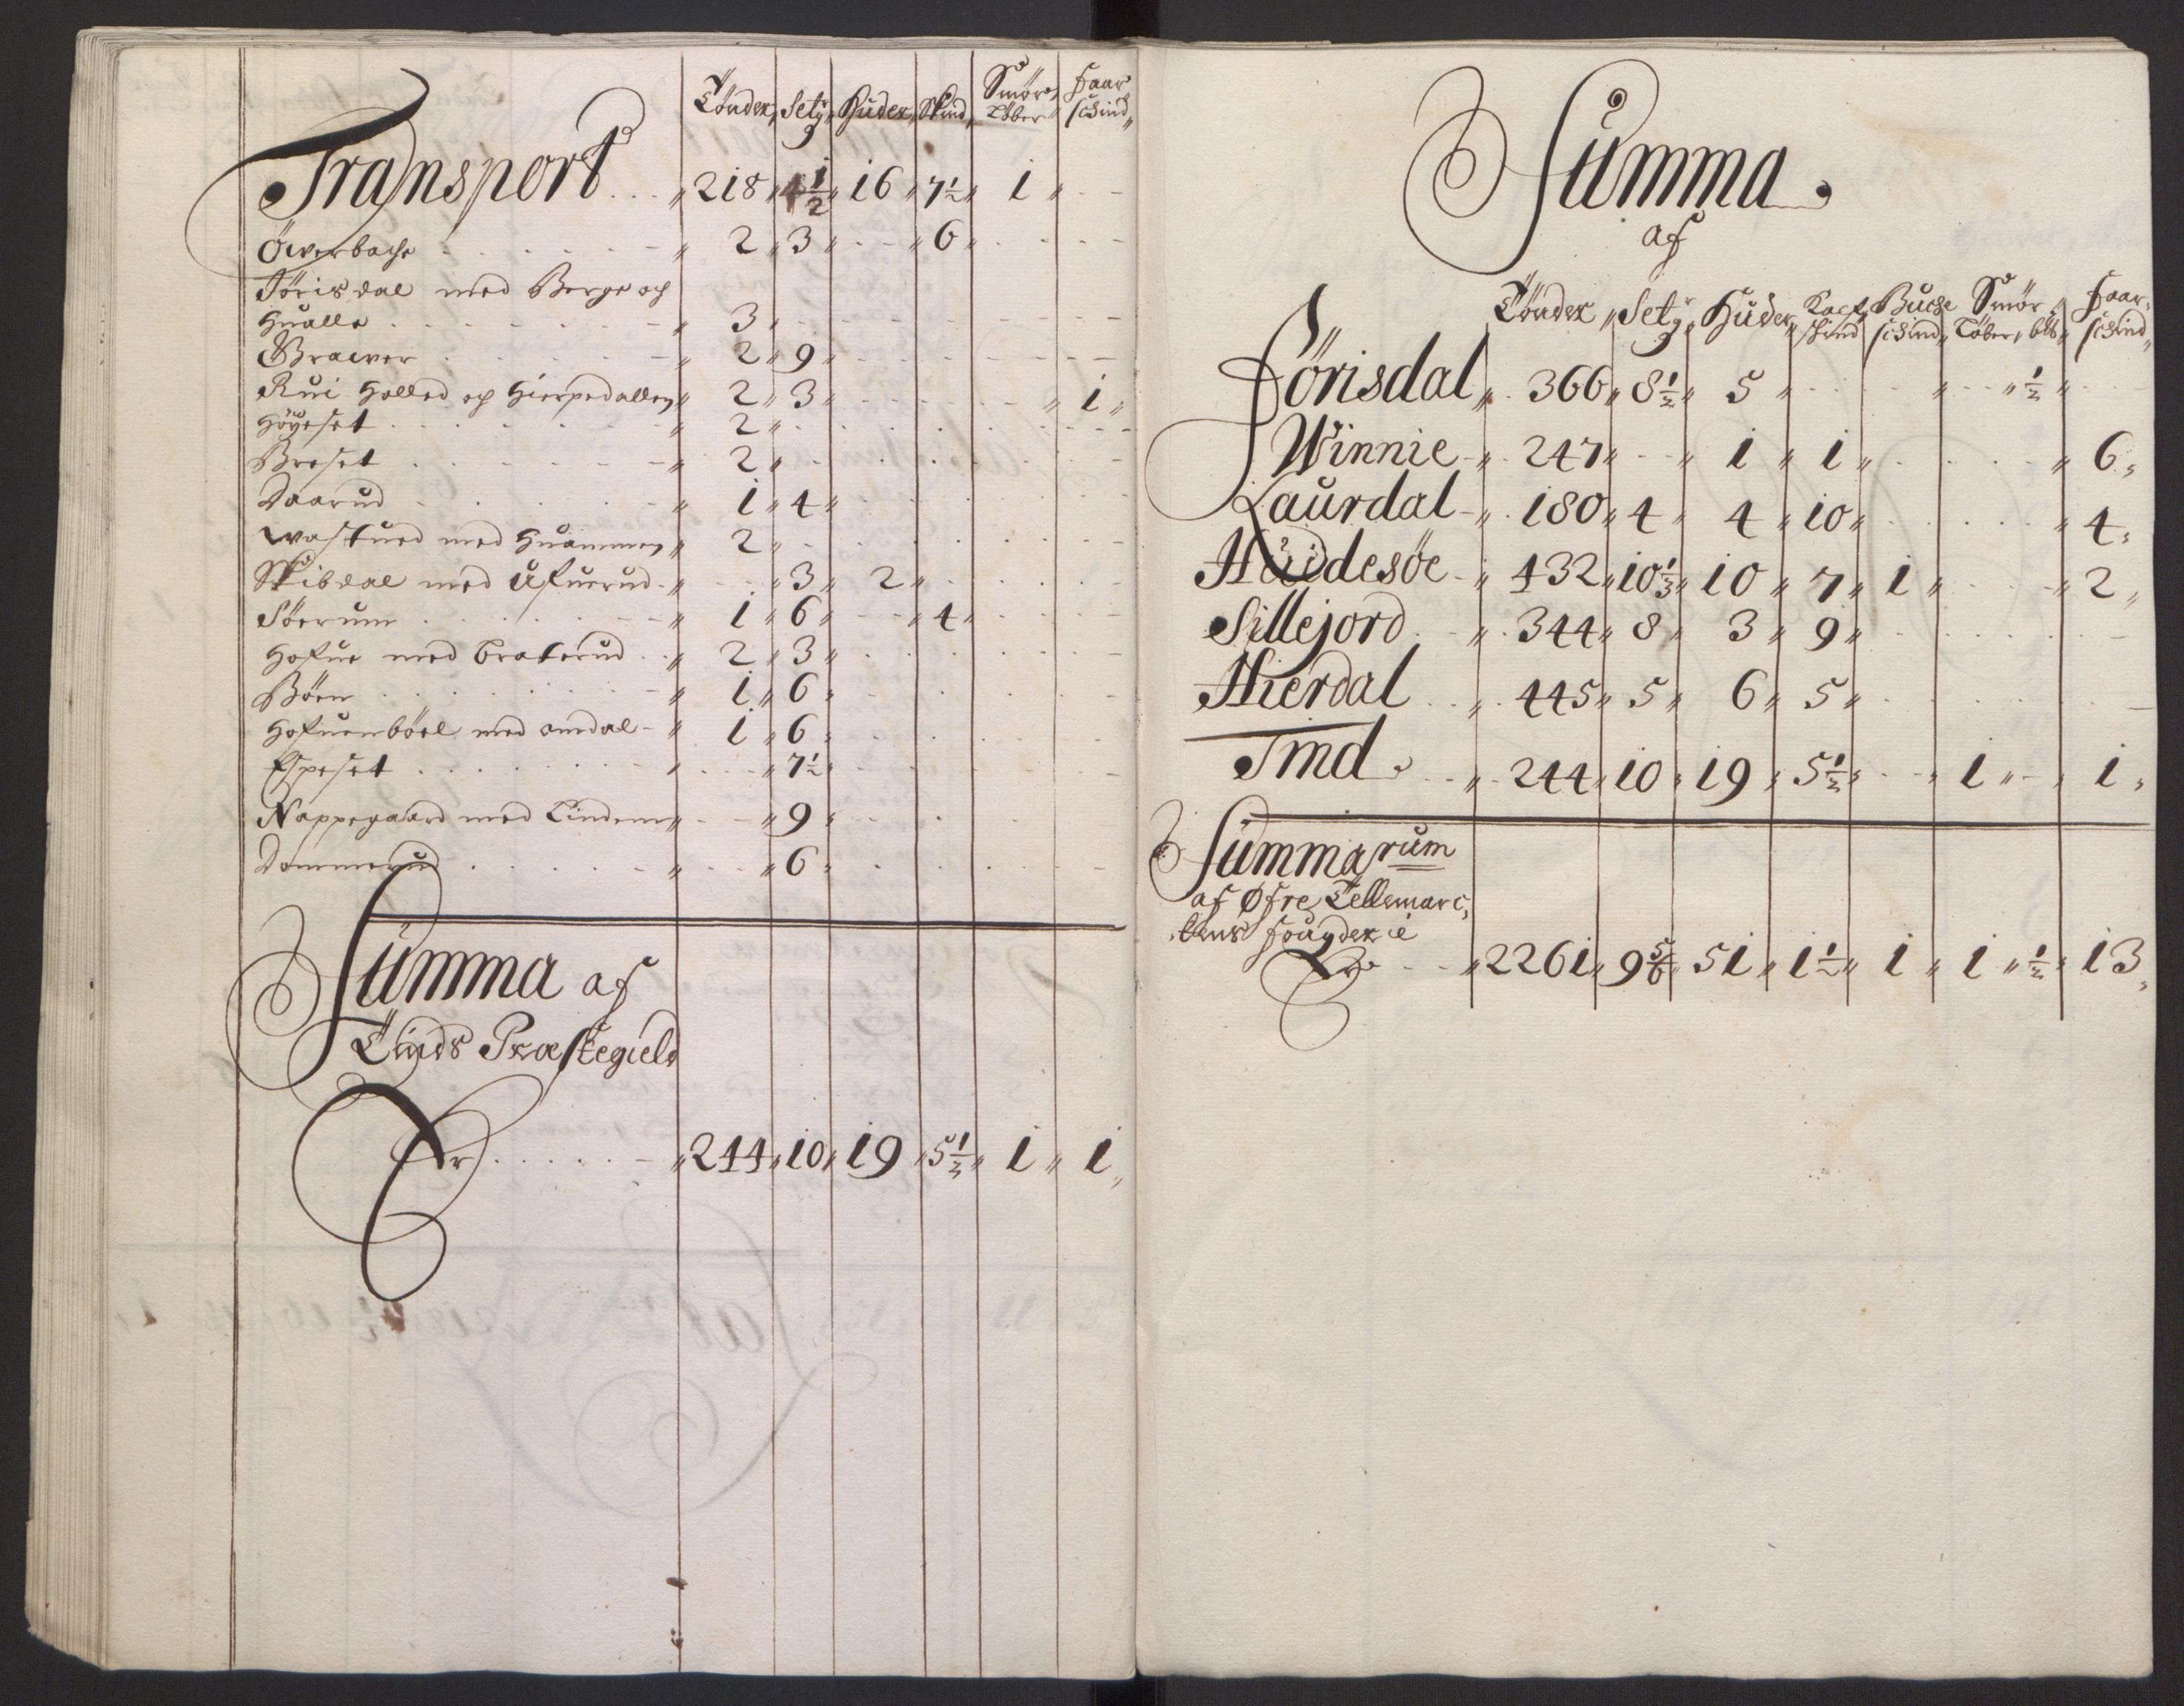 Tönder, Setg, Huder, Skind, Smör Löber Faar schind
Transport . . . 218 4½ 16 7½ 1
Öwerbache . . . 2 3 - 6
Töris dal med Berge og
Hualle . . . 3
Brawer . . . 2 9
Rui Holled og Hierpedallen 2 3 - 1
Höyeset . . . 2
Breset . . . 2
Daarud 1 4
Wastued med Huammen 2
Skibdal med Ufuerud - 3 2
Söerum . . . 1 6 - 4
Hofue med Braterud . . 2 3
Böen . . . 1 6
Hofuenböel med omdal - 1 6
Espeset . . . 7½
Nappegaard med Lindem 9
Dommerud . . . 6
Summa af
Tinds Præstegield
Er . . . . . 244 10 19 5½ 1 1
Summa.
af
Tönder, Setg, Huder, Kalfskind Bucke schind, Smör Löber, blb, Faar schind
Törisdal 366 8½ 5 - ½
Winnie 247 - 1 1 - 6
Laurdal 180 4 4 10 - 4
Huidesöe 432 10⅓ 10 7 1 - 2
Sillejord 344 8 3 9
Hierdal 445 5 6 5
Tind . 244 10 19 5½ - 1 - 1
Summarum
af Øfre Tellemarc,
kens fougderie
Er 2261 9⅚ 51 1½ 1 1 ½ 13